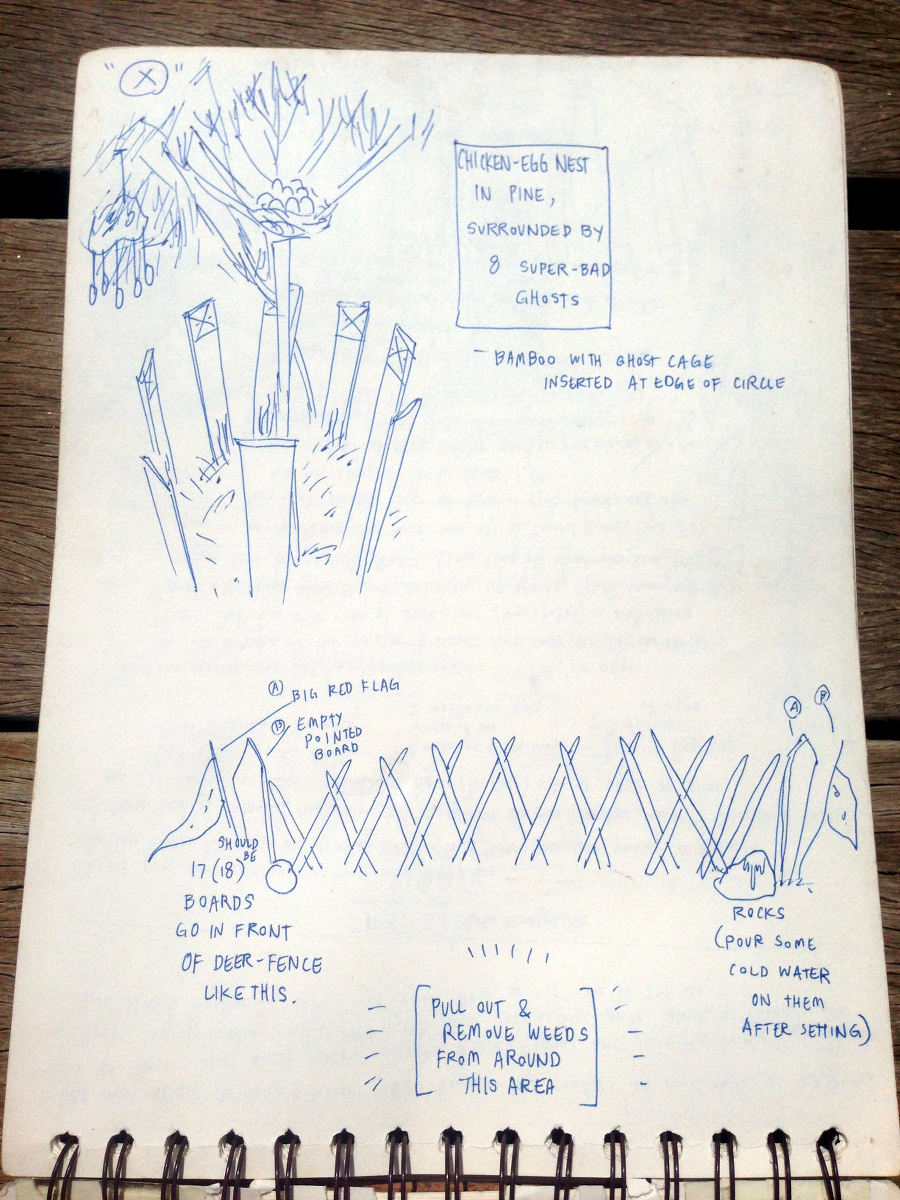 "Ⓧ"
CHICKEN-EGG NEST
IN PINE,
SURROUNDED BY
8 SUPER-BAD
GHOSTS
- BAMBOO WITH GHOST CAGE
INSERTED AT EDGE OF CIRCLE
Ⓐ BIG RED FLAG
Ⓑ EMPTY
POINTED
BOARD
Ⓐ
SHOULD
BE
17 (18)
BOARDS
GO IN FRONT
OF DEER-FENCE
LIKE THIS.
ROCKS
(POUR SOME
COLD WATER
ON THEM
AFTER SETTING)
PULL OUT &
REMOVE WEEDS
FROM AROUND
THIS AREA